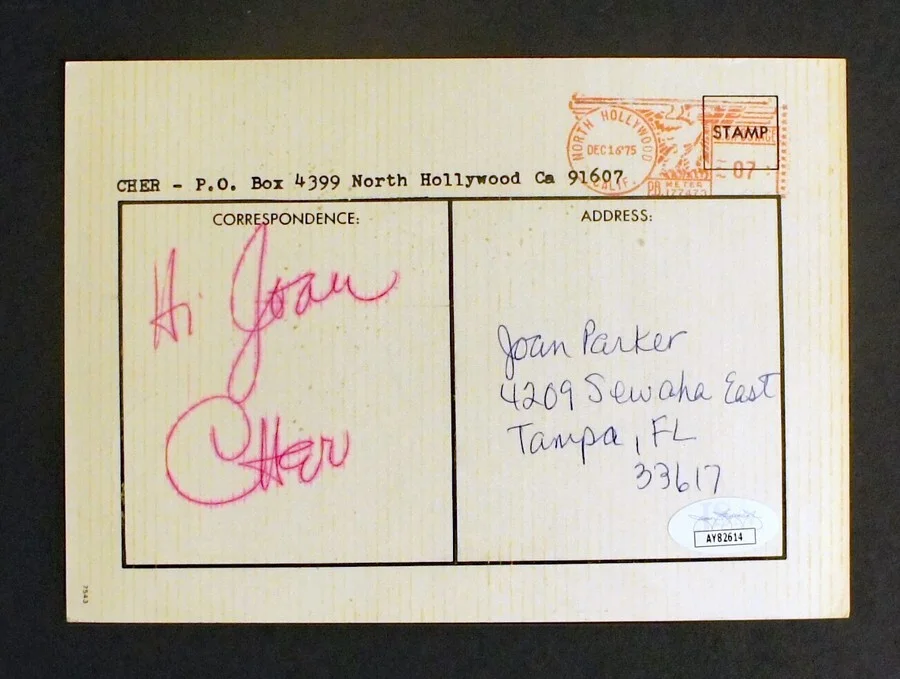 NORTH HOLLYWOOD
DEC 16 '75
CALIF.
STAMP
07
PB METER
CHER - P.O. Box 4399 North Hollywood Ca 91607
CORRESPONDENCE:
ADDRESS:
Hi Joan
CHer
Joan Parker
4209 Sewaha East
Tampa, FL
33617
AY82614
7543